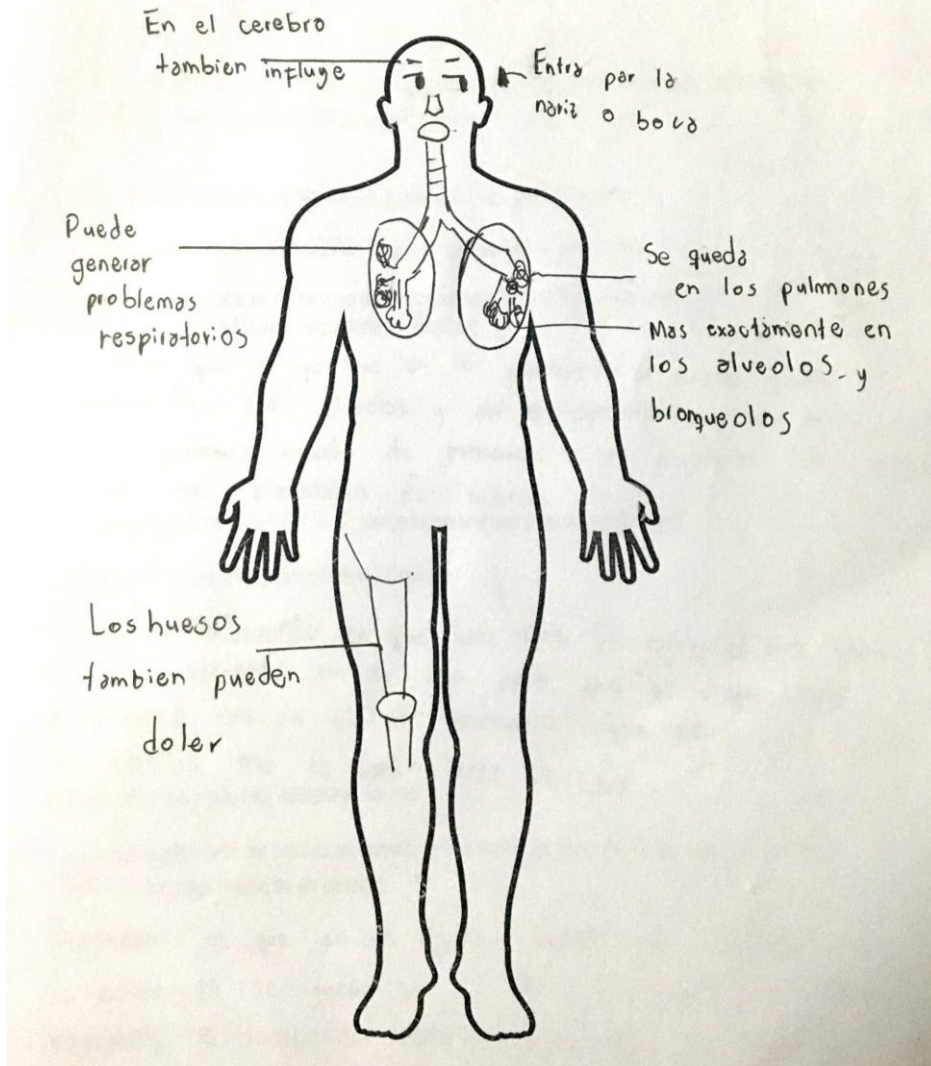 En el cerebro
tambien influye
Entra por la
nariz o boca
Puede
generar
problemas
respiratorios
Se queda
en los pulmones
Mas exactamente en
los alveolos y
bronqueolos
Los huesos
tambien pueden
doler